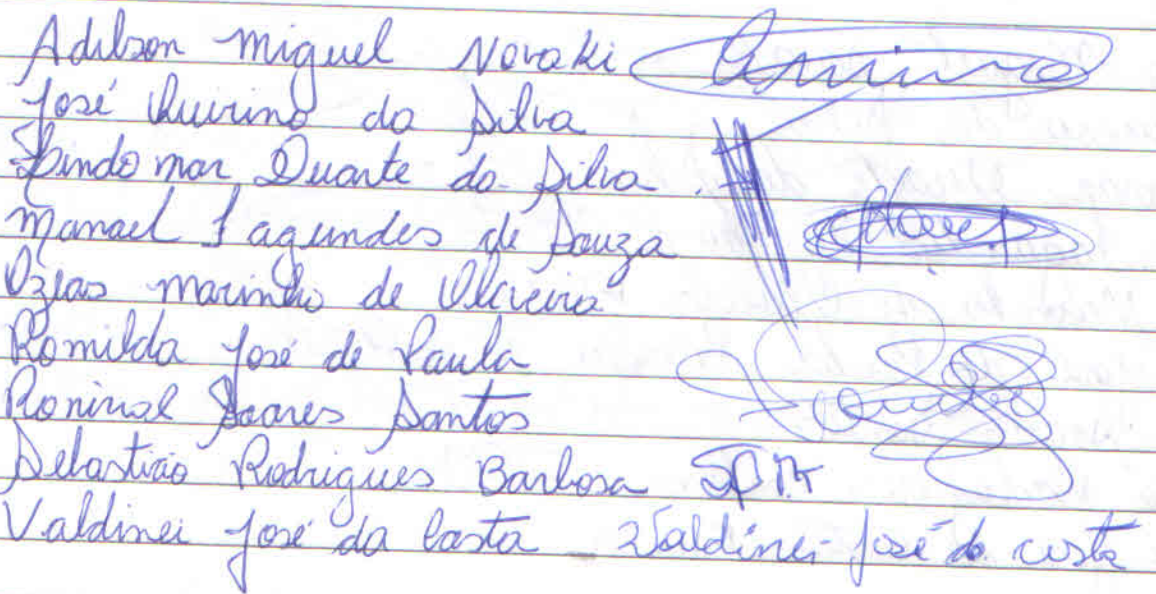 Adilson Miguel Novaki
José Quirino da Silva
Lindomar Duarte da Silva
Manoel Fagundes de Souza
Ozias Marinho de Oliveira
Romilda José de Paula
Ronival Soares Santos
Sebastião Rodrigues Barbosa SRB
Valdinei José da Costa - Valdinei José da costa